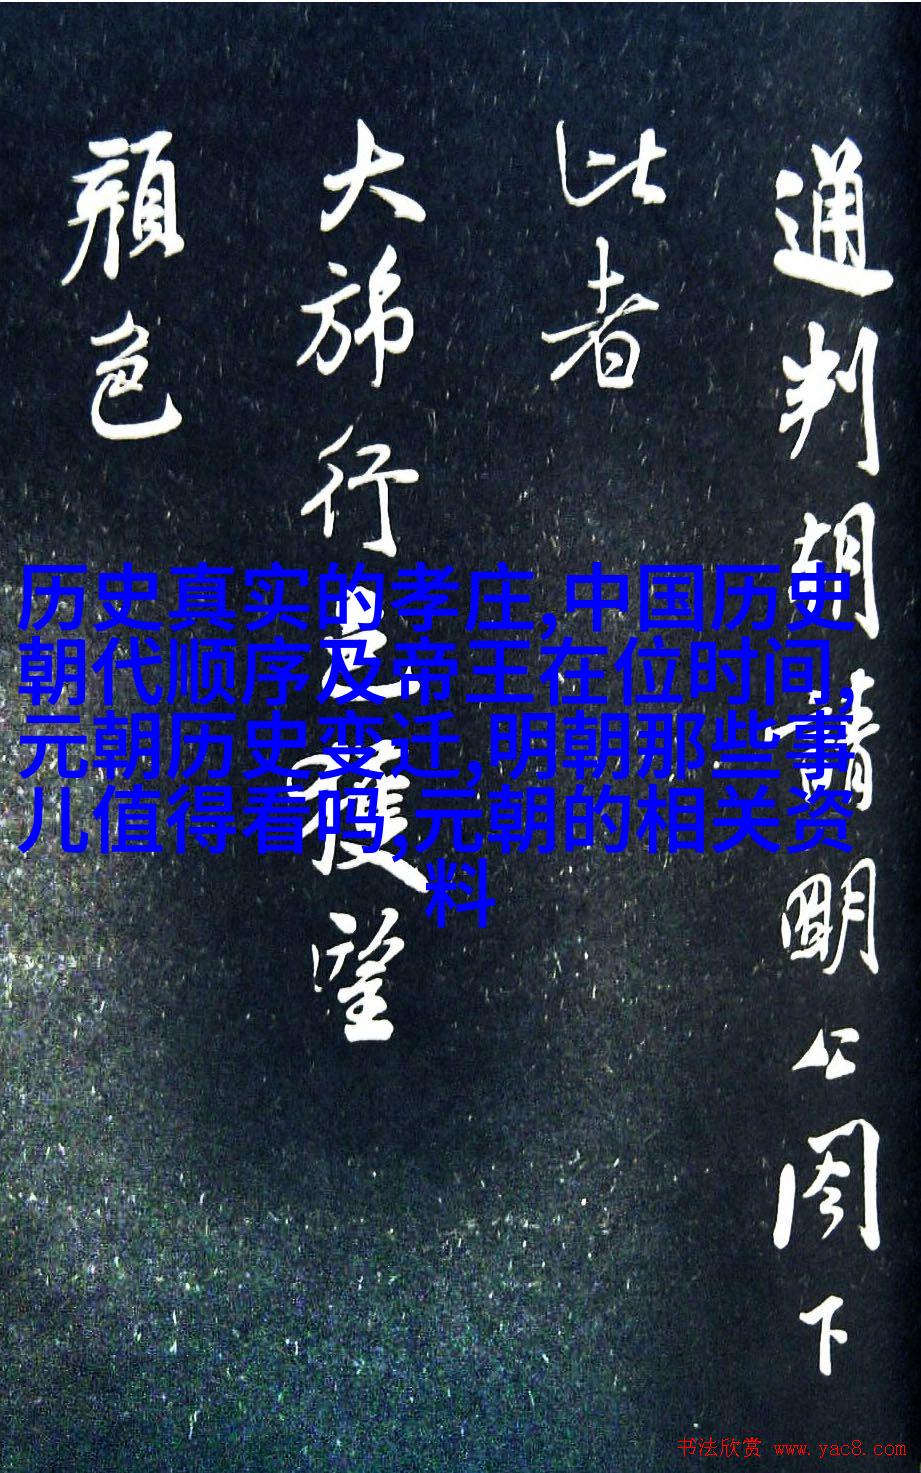 通判朝請明公閤下
此者
大旆行邑獲望
顏色
历史真实的孝庄,中国历史
朝代顺序及帝王在位时间,
元朝历史变迁,明朝那些事
儿值得看吗,元朝的相关资
料
书法欣赏 www.yac8.com